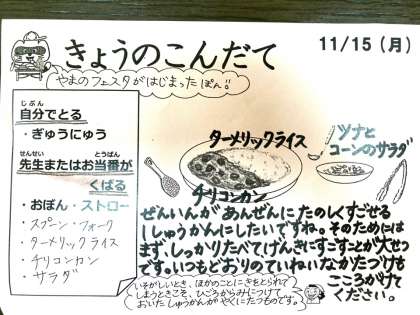 きょうのこんだて
11/15（月）
やまのフェスタがはじまったぽん!!
じぶん
自分でとる
・ぎゅうにゅう
せんせい とうばん
先生またはお当番が
くばる
・おぼん・ストロー
・スプーン・フォーク
・ターメリックライス
・チリコンカン
・サラダ
ターメリックライス
ツナと
コーンのサラダ
チリコンカン
ぜんいんが あんぜんに たのしくすごせる
1しゅうかんにしたいですね。そのためには
まず、しっかりたべて、げんきにすごすことが大せつ
です。いつもどおりのていねいなかたづけも
こころがけて
ください。
いそがしいとき、ほかのことにきをとられて
しまうときこそ、ひごろからみにつけて
おいたしゅうかんがやくにたつものです。